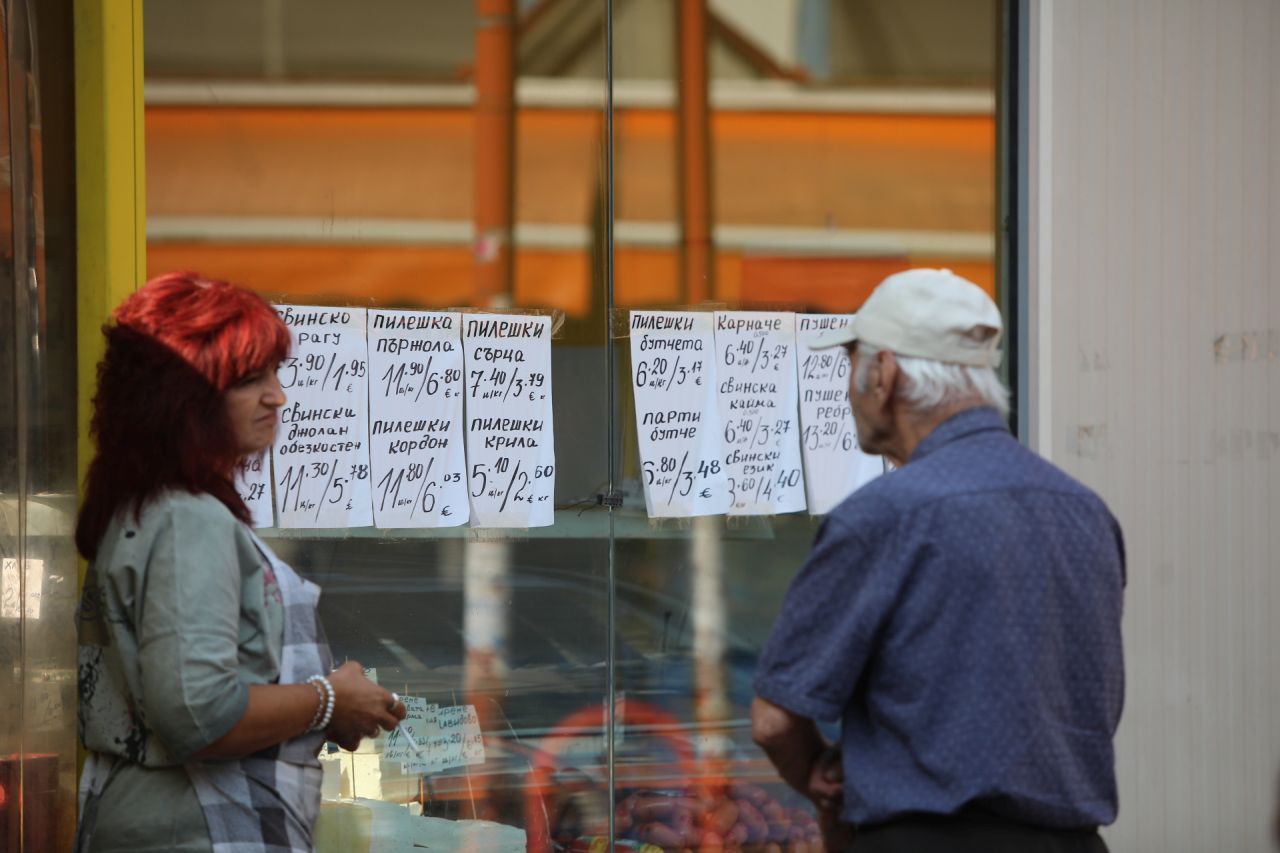 СВИНСКО
РАГУ
3.90/1.95
лв/кг €
СВИНСКИ
ДЖОЛАН
ОБЕЗКОСТЕН
11.30/5.78
лв/кг €
.27
€
ПИЛЕШКА
ПЪРЖОЛА
11.90/6.80
лв/кг € кг
ПИЛЕШКИ
КОРДОН
11.80/6.03
лв/кг €
ПИЛЕШКИ
СЪРЦА
7.40/3.79
лв/кг € кг
ПИЛЕШКИ
КРИЛА
5.10/2.60
лв/кг € кг
ПИЛЕШКИ
БУТЧЕТА
6.20/3.17
лв/кг €
ПАРТИ
БУТЧЕ
6.80/3.48
лв/кг €
КАРНАЧЕ
0.500
6.40/3.27
€
СВИНСКА
КАЙМА
0.500
6.40/3.27
€
СВИНСКИ
ЕЗИК
3.60/4.40
лв/кг €
ПУШЕН
12.80/6
лв/кг
ПУШЕН
РЕБР
13.20/6.
лв/кг